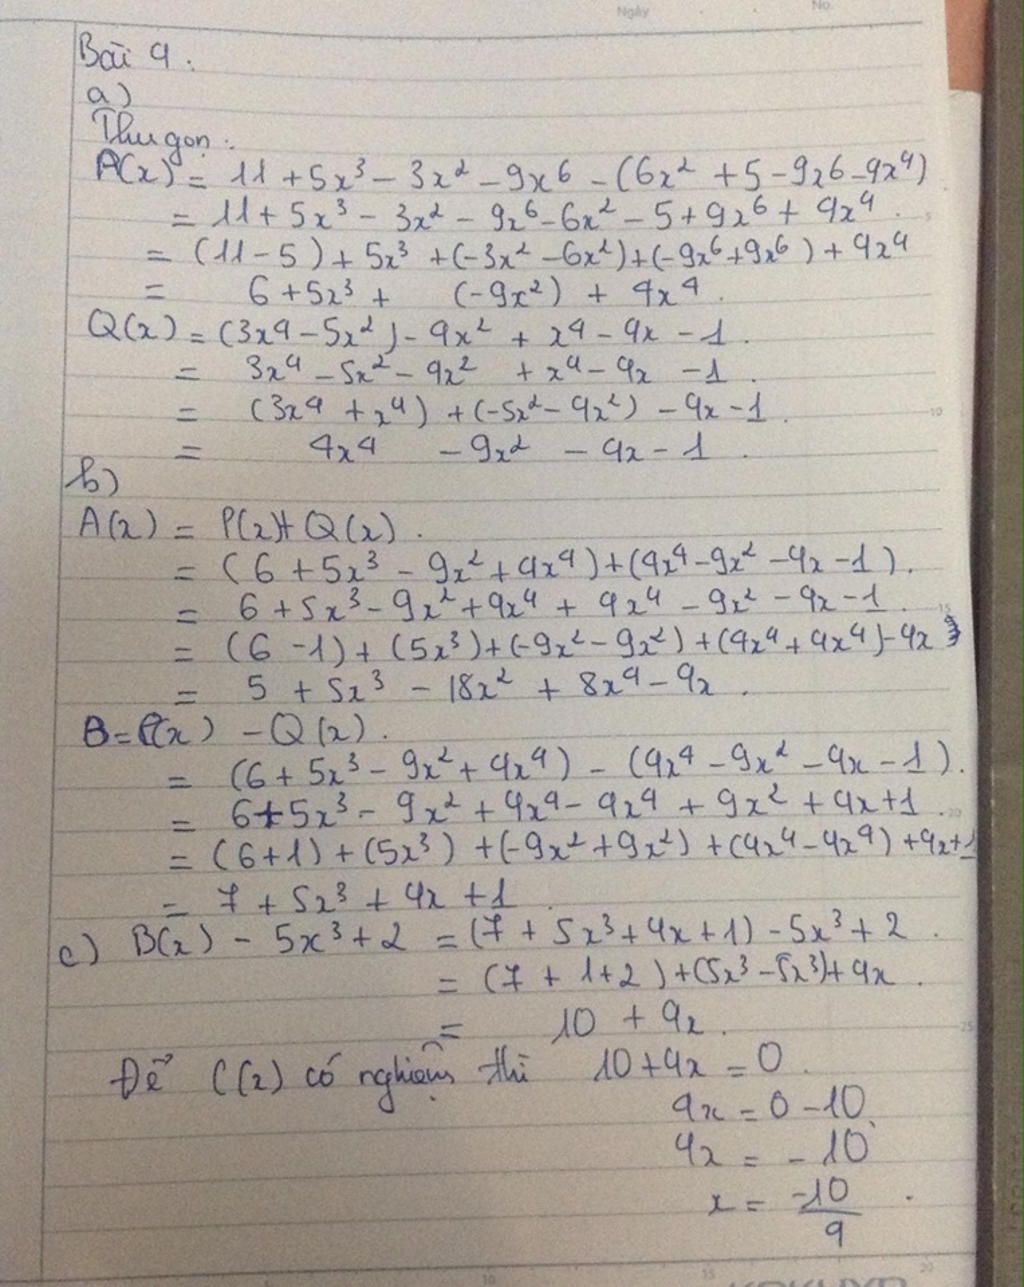 Ngày No.
Bài 4.
a)
Thu gọn:
A(x) = 11 + 5x³ - 3x² - 9x⁶ - (6x² + 5 - 9x⁶ - 4x⁴)
= 11 + 5x³ - 3x² - 9x⁶ - 6x² - 5 + 9x⁶ + 4x⁴.
= (11 - 5) + 5x³ + (-3x² - 6x²) + (-9x⁶ + 9x⁶) + 4x⁴
= 6 + 5x³ + (-9x²) + 4x⁴.
Q(x) = (3x⁴ - 5x²) - 4x² + x⁴ - 4x - 1.
= 3x⁴ - 5x² - 4x² + x⁴ - 4x - 1.
= (3x⁴ + x⁴) + (-5x² - 4x²) - 4x - 1.
= 4x⁴ - 9x² - 4x - 1.
b)
A(x) = P(x) + Q(x).
= (6 + 5x³ - 9x² + 4x⁴) + (4x⁴ - 9x² - 4x - 1).
= 6 + 5x³ - 9x² + 4x⁴ + 4x⁴ - 9x² - 4x - 1.
= (6 - 1) + (5x³) + (-9x² - 9x²) + (4x⁴ + 4x⁴) - 4x
= 5 + 5x³ - 18x² + 8x⁴ - 4x.
B = P(x) - Q(x).
= (6 + 5x³ - 9x² + 4x⁴) - (4x⁴ - 9x² - 4x - 1).
= 6 + 5x³ - 9x² + 4x⁴ - 4x⁴ + 9x² + 4x + 1.
= (6 + 1) + (5x³) + (-9x² + 9x²) + (4x⁴ - 4x⁴) + 4x + 1
= 7 + 5x³ + 4x + 1.
c) B(x) - 5x³ + 2 = (7 + 5x³ + 4x + 1) - 5x³ + 2.
= (7 + 1 + 2) + (5x³ - 5x³) + 4x.
= 10 + 4x.
Để C(x) có nghiệm thì 10 + 4x = 0.
4x = 0 - 10.
4x = -10
x = -10/4.